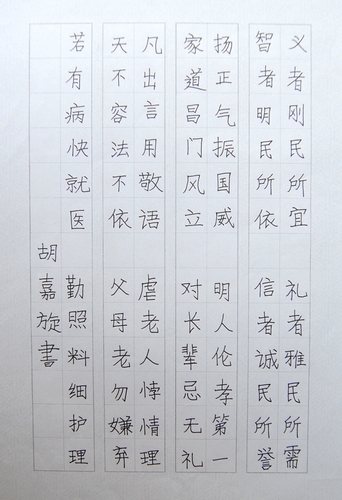 义者刚民所宜 礼者雅民所需
智者明民所依 信者诚民所誉
扬正气振国威 明人伦孝第一
家道昌门风立 对长辈忌无礼
凡出言用敬语 虐老人悖情理
天不容法不依 父母老勿嫌弃
若有病快就医 勤照料细护理
胡嘉旋書